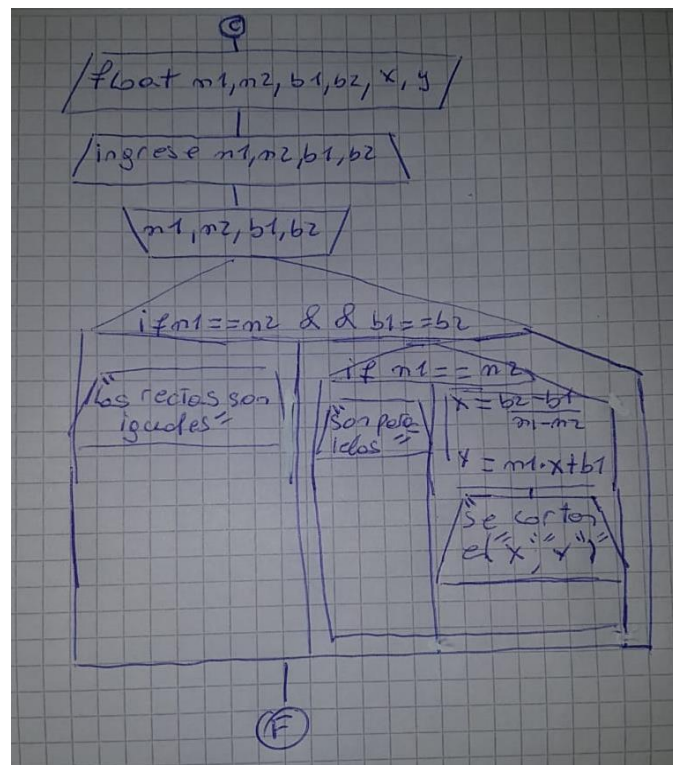 C
float m1, m2, b1, b2, x, y
ingrese m1, m2, b1, b2
m1, m2, b1, b2
if m1 == m2 && b1 == b2
"las rectas son
iguales"
if m1 == m2
"son para
lelas"
x = b2 - b1
m1 - m2
y = m1 · x + b1
"se cortan
e("x","y")"
F